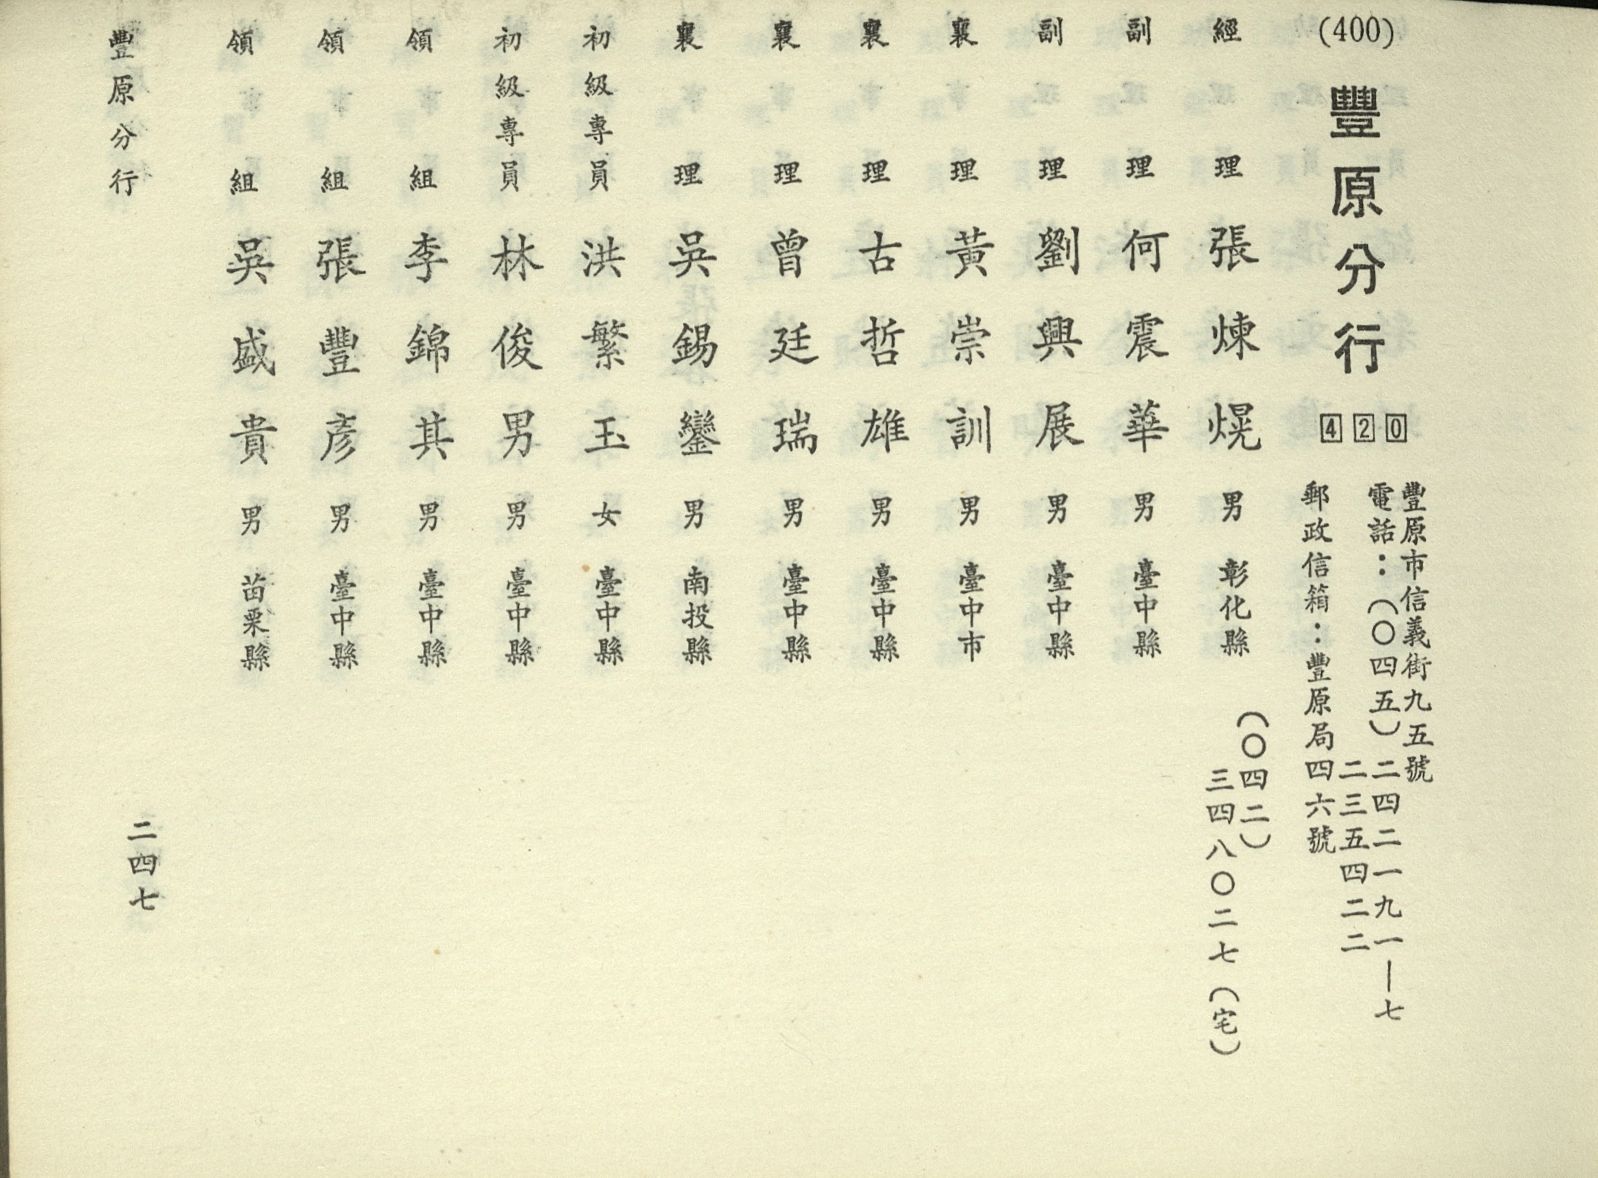 (400)
豐原分行 420
豐原市信義街九五號
電話：(〇四五)二四二一九一—七
二三五四二二
郵政信箱：豐原局四六號
經理 張煉熀 男 彰化縣 (〇四二)
三四八〇二七(宅)
副理 何震華 男 臺中縣
副理 劉興展 男 臺中縣
襄理 黃崇訓 男 臺中市
襄理 古哲雄 男 臺中縣
襄理 曾廷瑞 男 臺中縣
襄理 吳錫鑾 男 南投縣
初級專員 洪繁玉 女 臺中縣
初級專員 林俊男 男 臺中縣
領組 李錦其 男 臺中縣
領組 張豐彥 男 臺中縣
領組 吳盛貴 男 苗栗縣
豐原分行
二四七